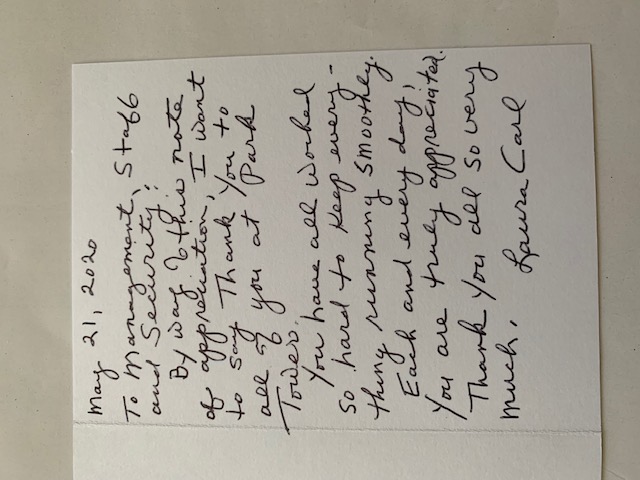 May 21, 2020
To Management, Staff
and Security:
By way of this note
of appreciation, I want
to say Thank You to
all of you at Park
Tower.
You have all worked
so hard to keep every-
thing running smoothly.
Each and every day!
You are truly appreciated.
Thank You all so very
much.
Laura Carl